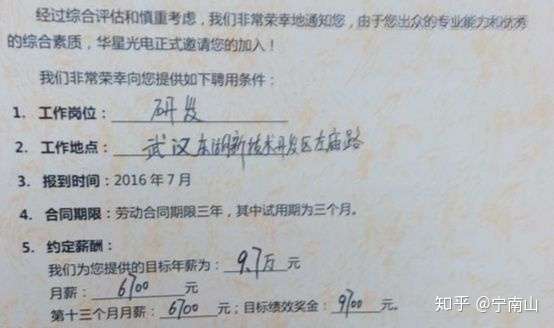 经过综合评估和慎重考虑，我们非常荣幸地通知您，由于您出众的专业能力和优秀
的综合素质，华星光电正式邀请您的加入！
我们非常荣幸向您提供如下聘用条件：
1. 工作岗位： 研发
2. 工作地点： 武汉东湖新技术开发区左庙路
3. 报到时间：2016 年 7 月
4. 合同期限：劳动合同期限三年，其中试用期为三个月。
5. 约定薪酬：
我们为您提供的目标年薪为： 9.7万 元
月薪： 6700 元
第十三个月月薪： 6700 元；目标绩效奖金： 9700 元。
知乎 @宁南山